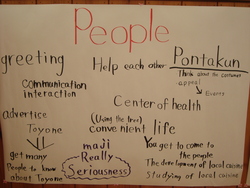 People
greeting
Help each other
Pontakun
Think about the costumer
appeal
Events
communication
interaction
Center of health
advertice
Toyone
(Using the tree)
convenient life
get many
People to know
about Toyone
maji
Really
Seriousness
You get to come to
the people
The development of local cuisine
Studying of local cuisine